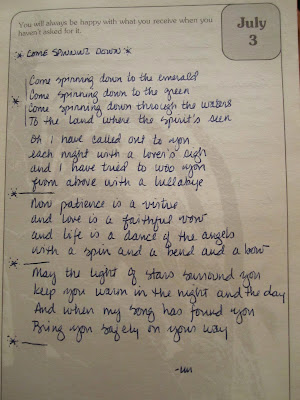 You will always be happy with what you receive when you
haven't asked for it.
July
3
* COME SPINNING DOWN *
Come spinning down to the emerald
Come spinning down to the green
* Come spinning down through the waters
To the land where the spirit's seen
Oh I have called out to you
each night with a lover's sigh
and I have tried to woo you
from above with a lullabye
*
Now patience is a virtue
and love is a faithful vow
and life is a dance of the angels
with a spin and a bend and a bow
*
May the light of stars surround you
keep you warm in the night and the day
And when my song has found you
Bring you safely on your way
*